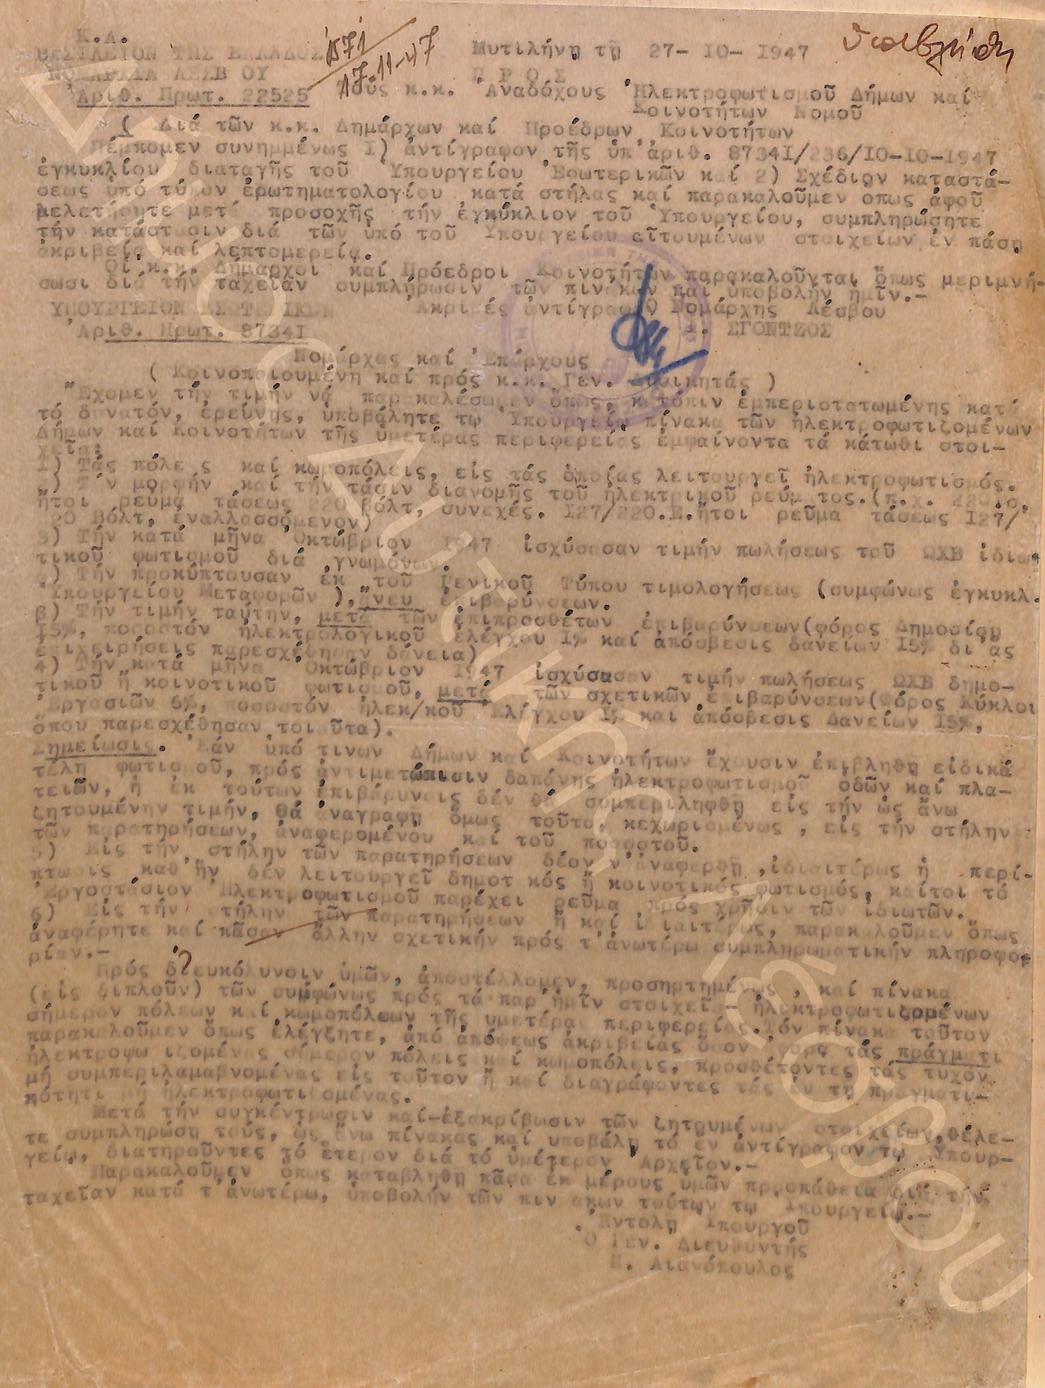 Κ.Δ.
ΒΑΣΙΛΕΙΟΝ ΤΗΣ ΕΛΛΑΔΟΣ 1571 Μυτιλήνη τῃ 27- 10- 1947 ὑπεβλήθη
ΝΟΜΑΡΧΙΑ ΛΕΣΒΟΥ 17-11-47 Π Ρ Ο Σ
Ἀριθ. Πρωτ. 22525 Τούς κ.κ. Ἀναδόχους Ἠλεκτροφωτισμοῦ Δήμων καί
Κοινοτήτων Νομοῦ
( Διά τῶν κ.κ. Δημάρχων καί Προέδρων Κοινοτήτων
Πέμπομεν συνημμένως I) ἀντίγραφον τῆς ὑπ'ἀριθ. 8734I/236/IO-IO-1947
ἐγκυκλίου διαταγῆς τοῦ Ὑπουργείου Ἐσωτερικῶν καί 2) Σχέδιον καταστά-
σεως ὑπό τύπον ἐρωτηματολογίου κατά στήλας καί παρακαλοῦμεν ὅπως ἀφοῦ
μελετήσητε μετά προσοχῆς τήν ἐγκύκλιον τοῦ Ὑπουργείου, συμπληρώσητε
τήν κατάστασιν διά τῶν ὑπό τοῦ Ὑπουργείου αἰτουμένων στοιχείων ἐν πάσῃ
ἀκριβείᾳ καί λεπτομερείᾳ.
Οἱ κ.κ. Δήμαρχοι καί Πρόεδροι Κοινοτήτων παρακαλοῦνται ὅπως μεριμνή-
σωσι διά τήν ταχεῖαν συμπλήρωσιν τῶν πινάκων καί ὑποβολήν ἡμῖν.-
ΥΠΟΥΡΓΕΙΟΝ ΕΣΩΤΕΡΙΚΩΝ Ἀκριβές ἀντίγραφον Ὁ Νομάρχης Λέσβου
Ἀριθ. Πρωτ. 8734I ΣΓΟΝΤΖΟΣ
Νομάρχας καί Ἐπάρχους
( Κοινοποιουμένη καί πρός κ.κ. Γεν. Διοικητάς )
Ἔχομεν τήν τιμήν νά παρακαλέσωμεν ὅπως, κατόπιν ἐμπεριστατωμένης κατά
τό δυνατόν, ἐρεύνης, ὑποβάλητε τῳ Ὑπουργείῳ πίνακα τῶν ἠλεκτροφωτιζομένων
Δήμων καί Κοινοτήτων τῆς ὑμετέρας περιφερείας ἐμφαίνοντα τά κάτωθι στοι-
χεῖα:
I) Τάς πόλεις καί κωμοπόλεις, εἰς τάς ὁποίας λειτουργεῖ ἠλεκτροφωτισμός.
2) Τήν μορφήν καί τήν τάσιν διανομῆς τοῦ ἠλεκτρικοῦ ρεύματος.(π.χ.
ἤτοι ρεῦμα τάσεως 220 βόλτ, συνεχές. I27/220.Ε.ἤτοι ρεῦμα τάσεως I27/
220 βόλτ, ἐναλλασσόμενον)
3) Τήν κατά μῆνα Ὀκτώβριον 1947 ἰσχύσασαν τιμήν πωλήσεως τοῦ ΩΧΒ ἰδιω-
τικοῦ φωτισμοῦ διά γνωμόνων.
α) Τήν προκύπτουσαν ἐκ τοῦ Γενικοῦ Τύπου τιμολογήσεως (συμφώνως ἐγκυκλ.
Ὑπουργείου Μεταφορῶν ),ἄνευ ἐπιβαρύνσεων.
β) Τήν τιμήν ταύτην, μετά τῶν ἐπιπροσθέτων ἐπιβαρύνσεων(φόρος Δημοσίου
15%, ποσοστόν ἠλεκτρολογικοῦ ἐλέγχου I% καί ἀπόσβεσις δανείων I5% δι'ἅς
ἐπιχειρήσεις παρεσχέθησαν δάνεια)
4) Τήν κατά μῆνα Ὀκτώβριον 1947 ἰσχύσασαν τιμήν πωλήσεως ΩΧΒ δημο-
τικοῦ ἤ κοινοτικοῦ φωτισμοῦ, μετά τῶν σχετικῶν ἐπιβαρύνσεων(Φόρος Κύκλου
Ἐργασιῶν 6%, ποσοστόν ἠλεκ/κοῦ Ἐλέγχου I% καί ἀπόσβεσις Δανείων I5%,
ὅπου παρεσχέθησαν τοιαῦτα).
Σημείωσις. Ἐάν ὑπό τινων Δήμων καί Κοινοτήτων ἔχουσιν ἐπιβληθῆ εἰδικά
τέλη φωτισμοῦ, πρός ἀντιμετώπισιν δαπάνης ἠλεκτροφωτισμοῦ ὁδῶν καί πλα-
τειῶν, ἡ ἐκ τούτων ἐπιβάρυνσις δέν θά συμπεριληφθῆ εἰς τήν ὡς ἄνω
ζητουμένην τιμήν, θά ἀναγραφῆ ὅμως τοῦτο, κεχωρισμένως , εἰς τήν στήλην
τῶν παρατηρήσεων, ἀναφερομένου καί τοῦ ποσοστοῦ.
5) Εἰς τήν στήλην τῶν παρατηρήσεων δέον ν'ἀναφερθῆ ,ἰδιαιτέρως ἡ περί-
πτωσις καθ'ἥν δέν λειτουργεῖ δημοτικός ἤ κοινοτικός φωτισμός, καίτοι τό
Ἐργοστάσιον Ἠλεκτροφωτισμοῦ παρέχει ρεῦμα πρός χρῆσιν τῶν ἰδιωτῶν.
6) Εἰς τήν στήλην τῶν παρατηρήσεων ἤ καί ἰδιαιτέρως, παρακαλοῦμεν ὅπως
ἀναφέρητε καί πᾶσαν ἄλλην σχετικήν πρός τ'ἀνωτέρω συμπληρωματικήν πληροφο-
ρίαν.-
Πρός διευκόλυνσιν ὑμῶν, ἀποστέλλομεν, προσηρτημένως , καί πίνακα
(εἰς διπλοῦν) τῶν συμφώνως πρός τά παρ'ἡμῖν στοιχεῖα- ἠλεκτροφωτιζομένων
σήμερον πόλεων καί κωμοπόλεων τῆς ὑμετέρας περιφερείας.Τόν πίνακα τοῦτον
παρακαλοῦμεν ὅπως ἐλέγξητε, ἀπό ἀπόψεως ἀκριβείας ὅσον ἀφορᾶ τάς πράγματι
ἠλεκτροφωτιζομένας σήμερον πόλεις καί κωμοπόλεις, προσθέτοντες τάς τυχόν
μή συμπεριλαμαβνομένας εἰς τοῦτον ἤ καί διαγράφοντες τάς ἐν τῃ πραγματι-
κότητι μή ἠλεκτροφωτιζομένας.
Μετά τήν συγκέντρωσιν καί-ἐξακρίβωσιν τῶν ζητουμένων στοιχείων,θέλε-
τε συμπληρώσῃ τούς, ὡς ἄνω πίνακας καί ὑποβάλῃ τό ἕν ἀντίγραφον τῳ Ὑπουρ-
γείῳ, διατηροῦντες τό ἕτερον διά τό ὑμέτερον Ἀρχεῖον.-
Παρακαλοῦμεν ὅπως καταβληθῆ πᾶσα ἐκ μέρους ὑμῶν προσπάθεια διά τήν
ταχεῖαν κατά τ'ἀνωτέρω, ὑποβολήν τῶν πινάκων τούτων τῳ Ὑπουργείῳ.-
Ἐντολῇ Ὑπουργοῦ
Ὁ Γεν. Διευθυντής
Αιανόπουλος